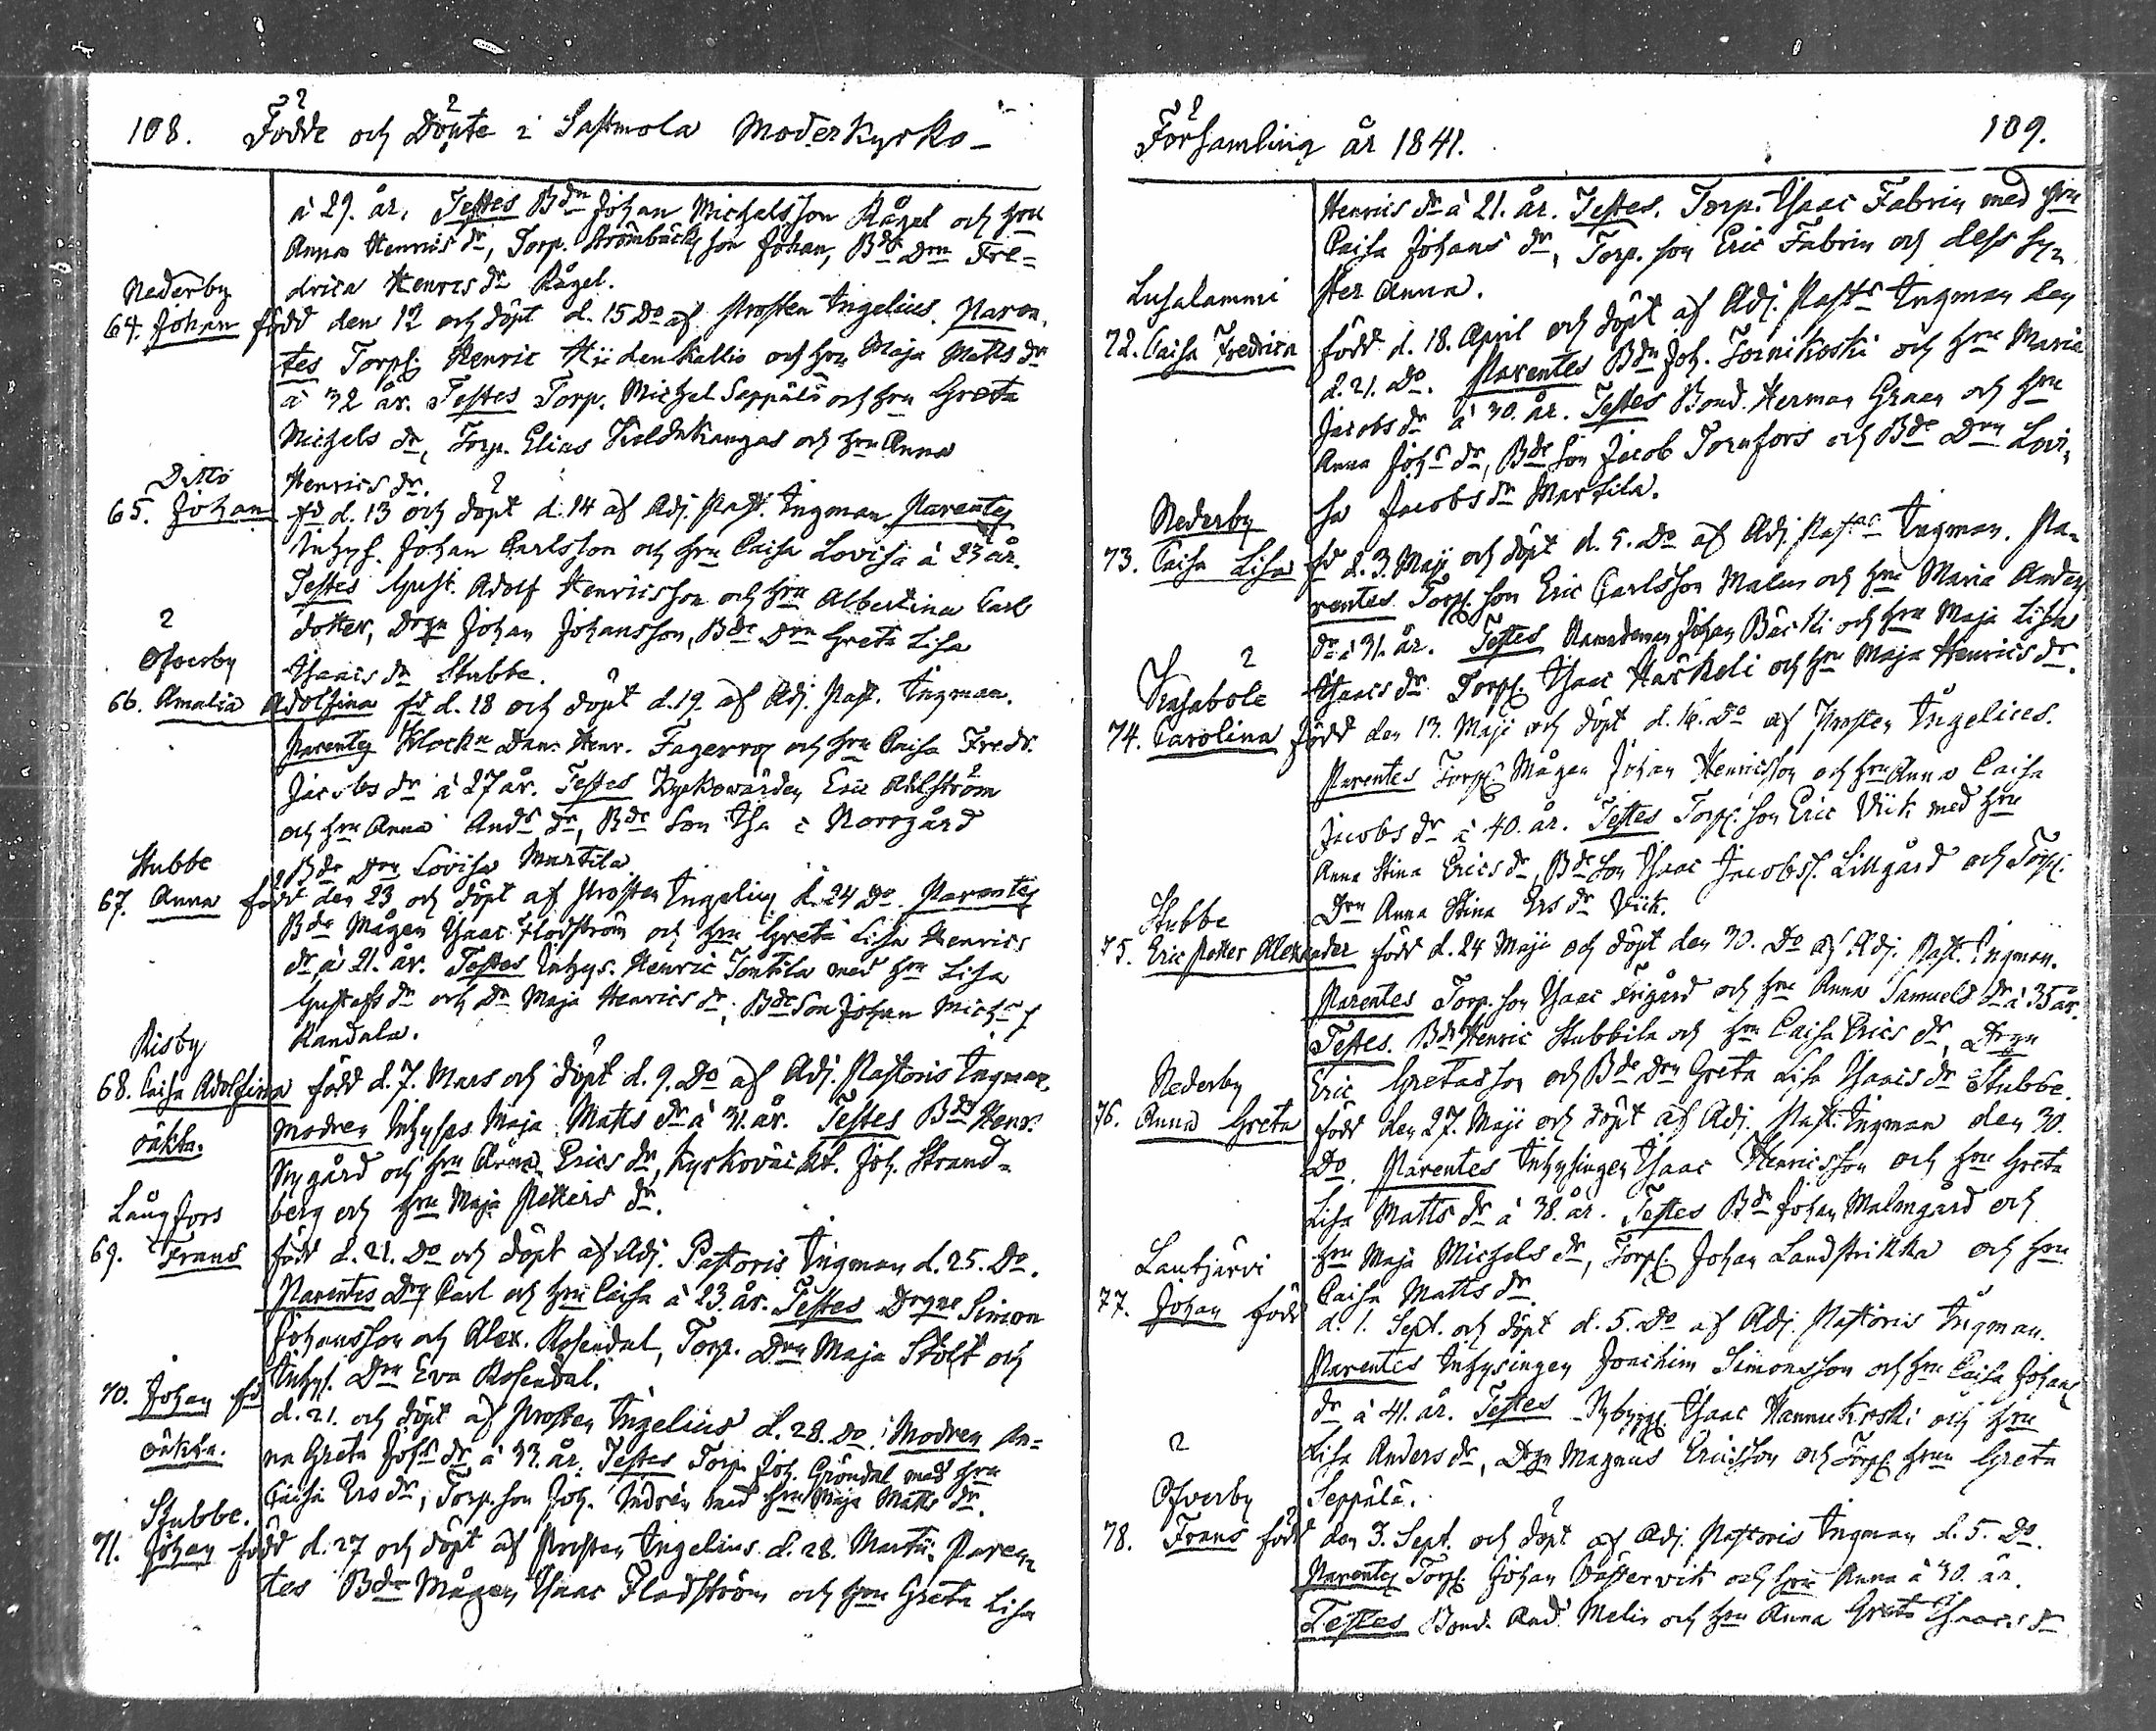 108. Födde och Döpte i Sastmola Moderkyrko-
à 29. år. Testes Bdn Johan Michelsson Rågel och hru
Anna Henrics dr, Torp. Strömbäcks son Johan, Bds Drn Fre=
drica Henrcs dr Rågel.
Nederby
64. Johan född den 12 och döpt d. 15 Do af Prosten Ingelius. Paren,
tes Torp. Henric Hiidenkallio och hru Maja Matts dr
à 32 år. Testes Torp. Michel Seppälä och hru Greta
Michels dr, Torp. Elias Kieldnkangas och hru Anna
Henrics dr.
Ditto
65. Johan fd d. 13 och döpt d. 14 af Adj. Past. Ingman. Parentes
Inhys. Johan Carlsson och hru Caisa Lovisa à 23 år.
Testes Gust. Adolf Henricsson och hru Albertina Carls
dotter, Drgn Johan Johansson, Bds Drn Greta Lisa
Isaacs dr Stubbe.
Öfverby
66. Amalia Adolfina fd d. 18 och döpt d. 19. af Adj. Past. Ingman.
Parentes Klockn Dan. Henr. Fagerroos och hru Caisa Fredr.
Jacobs dr à 27 år. Testes Kyrkowärden Eric Ahlström
och hru Anna Ands dr, Bds Son Norrgård
Bds Drn Lovisa Martila.
Stubbe
67. Anna född den 23 och döpt af Prosten Ingelius d. 24 Do. Parentes
Bds Mågen Isaac Flodström och hru Greta Lisa Henrics
dr à 21. år. Testes Inhys. Henric Tontila med hru Lisa
Gustafs dr och Dr Maja Henrics dr, Bds Son Johan Michs s
Kandala.
Risby
68. Caisa Adolfina född d. 7. Mars och döpt d. 9. Do af Adj. Pastoris Ingman.
oäkta.
Modren Inhyses Maja Matts dr à 31. år. Testes Bdn Henr.
Nygård och hru Anna Erics dr, Kyrkoväckt. Joh. Strand=
berg och hru Maja Petters dr.
Långfors
69. Frans född d. 21. Do och döpt af Adj. Pastoris Ingman d. 25. Do.
Parentes Drg Carl och hru Caisa à 23. år. Testes Drgne Simon
Johansson och Alex. Rosendal, Torp. Drn Maja Stolt och
Inhys. Drn Eva Rosendal.
70. Johan fd d. 21. och döpt af Prosten Ingelius d. 28. Do. Modren An=
oäkta.
na Greta Johs dr à 33. år. Testes Torp. Joh. Gröndal med hru
Caisa Ers dr, Torp. son Joh. Indrén med hru Maja Matts dr.
Stubbe.
71. Johan född d. 27 och döpt af Prosten Ingelius d. 28. Martii. Paren,
tes Bds Mågen Isaac Flodström och hru Greta Lisa
Församling år 1841. 109.
Henrics dr à 21. år. Testes. Torp. Isaac Fabrin med hru
Caisa Johans dr, Torp. son Eric Fabrin och dess sy,
ster Anna.
Lusalammi
72. Caisa Fredrica född d. 18. April och döpt af Adj. Pasts Ingman den
d. 21. Do. Parentes Bdn Joh. Tornikoski och hru Maria
Jacobs dr à 30. år. Testes Bond. Herman Graan och hru
Anna Johs dr, Bds Son Jacob Tornfors och Bds Drn Lovi,
sa Jacobs dr Martila.
Nederby
73. Caisa Lisa fd d. 3. Maji och döpt d. 5. Do af Adj. Past. Ingman. Pa,
rentes Torp. son Eric Carlsson Malm och hru Maria Anders
dr à 31. år. Testes Nämndeman Johan Bäcki och hru Maja Lisa
Isaacs dr Torp. Isaac Häckeli och hru Maja Henrics dr.
Kasaböle
74. Carolina född den 13. Maji och döpt d. 16. Do af Prosten Ingelius.
Parentes Torp. Mågen Johan Henricsson och hru Anna Caisa
Jacobs dr à 40. år. Testes Torp. son Eric Viik med hru
Anna Stina Erics dr, Bds Son Isaac Jacobss. Lillgård och Torp.
Drn Anna Stina Ers dr Viik.
Stubbe
75. Eric Petter Alexander född d. 24 Maji och döpt den 30. Do af Adj. Past. Ingman.
Parentes Torp. son Isaac Frigård och hru Anna Samuels dr à 35 år.
Testes. Bdn Henric Stubbila och hru Caisa Erics dr, Drgn
Eric Gretasson och Bds Drn Greta Lisa Isaacs dr Stubbe.
Nederby
76. Anna Greta född den 27. Maji och döpt af Adj. Past. Ingman den 30.
Do. Parentes Inhysingen Isaac Henricsson och hru Greta
Lisa Matts dr à 38. år. Testes Bdn Johan Malmgård och
hru Maja Michels dr, Torp. Johan Landstrikka och hru
Caisa Matts dr.
Lautjärvi
77. Johan född d. 1. Sept. och döpt d. 5. Do af Adj. Pastoris Ingman.
Parentes Inhysingen Joachim Simonsson och hru Caisa Johans
dr à 41. år. Testes Nybygg. Isaac Hannukoski och hru
Lisa Anders dr, Drgn Magnus Ericsson och Torp. hrun Greta
Seppälä.
Öfverby
78. Frans född den 3. Sept. och döpt af Adj. Pastoris Ingman d. 5. Do.
Parentes Torp. Johan Västervik och hru Anna à 30. år.
Testes Bond. And. Melin och hru Anna Greta Isaacs dr